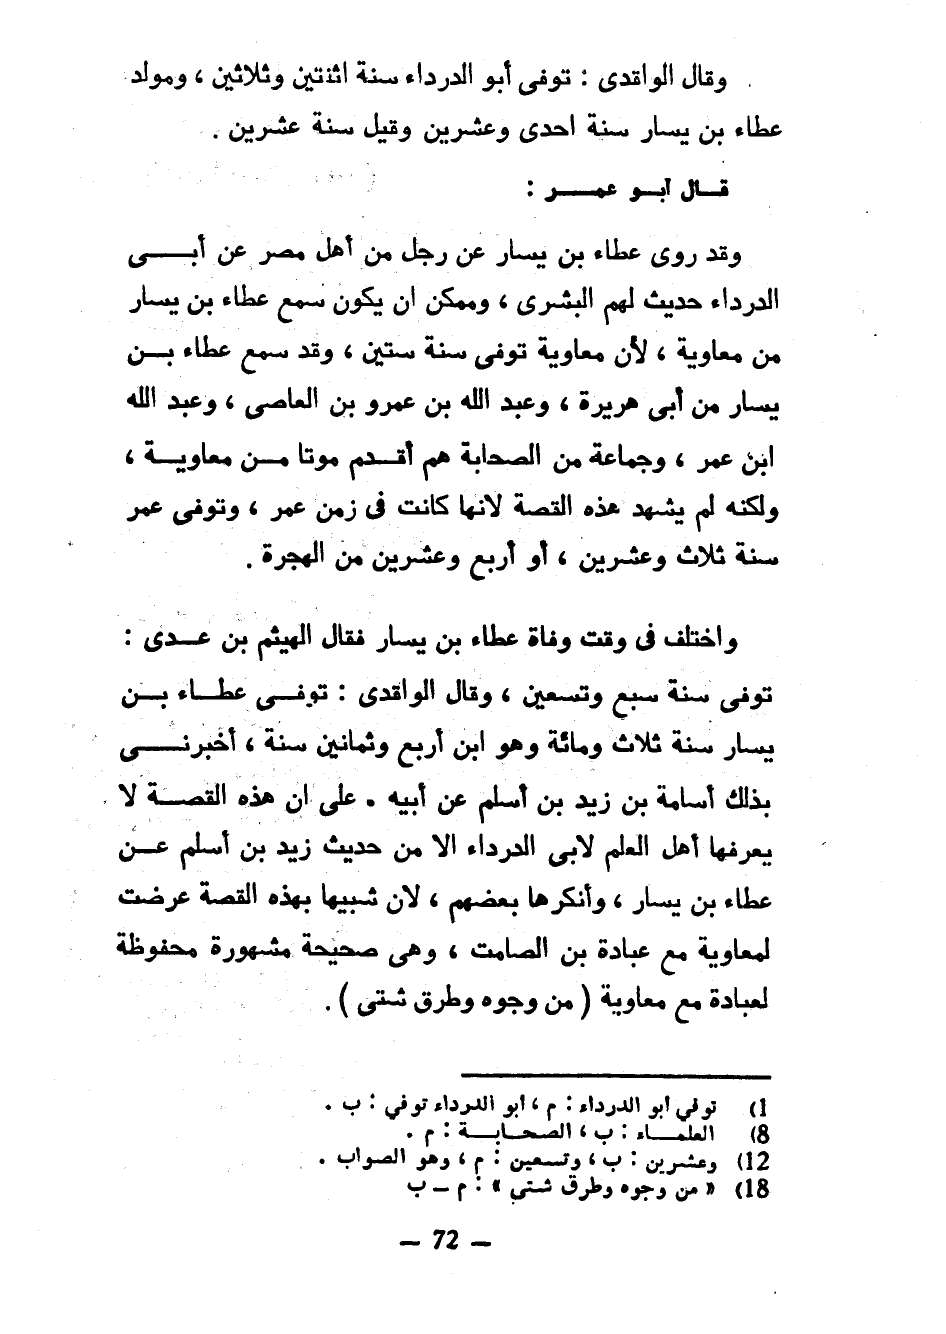 وقال الواقدى : توفى أبو الدرداء سنة اثنتين وثلاثين ، ومولد
عطاء بن يسار سنة احدى وعشرين وقيل سنة عشرين .
قــال أبــو عمــــر :
وقد روى عطاء بن يسار عن رجل من أهل مصر عن أبـــــى
الدرداء حديث لهم البشرى ، وممكن ان يكون سمع عطاء بن يسار
من معاوية ، لأن معاوية توفى سنة ستين ، وقد سمع عطاء بــن
يسار من أبى هريرة ، وعبد الله بن عمرو بن العاصى ، وعبد الله
ابن عمر ، وجماعة من الصحابة هم أقــدم موتا مــن معاويــة ،
ولكنه لم يشهد هذه القصة لانها كانت فى زمن عمر ، وتوفى عمر
سنة ثلاث وعشرين ، أو أربع وعشرين من الهجرة .
واختلف فى وقت وفاة عطاء بن يسار فقال الهيثم بن عــدى :
توفى سنة سبع وتسعين ، وقال الواقدى : توفــى عطــاء بــن
يسار سنة ثلاث ومائة وهو ابن أربع وثمانين سنة ، أخبرنــــى
بذلك أسامة بن زيد بن أسلم عن أبيه . على ان هذه القصــة لا
يعرفها أهل العلم لابى الدرداء الا من حديث زيد بن أسلم عــن
عطاء بن يسار ، وأنكرها بعضهم ، لان شبيها بهذه القصة عرضت
لمعاوية مع عبادة بن الصامت ، وهى صحيحة مشهورة محفوظة
لعبادة مع معاوية ( من وجوه وطرق شتى ) .
1) توفي أبو الدرداء : م ، أبو الدرداء توفي : ب .
8) العلمــاء : ب ، الصحــابــة : م .
12) وعشرين : ب ، وتسعين : م ، وهو الصواب .
18) « من وجوه وطرق شتى » : م ــ ب
— 72 —